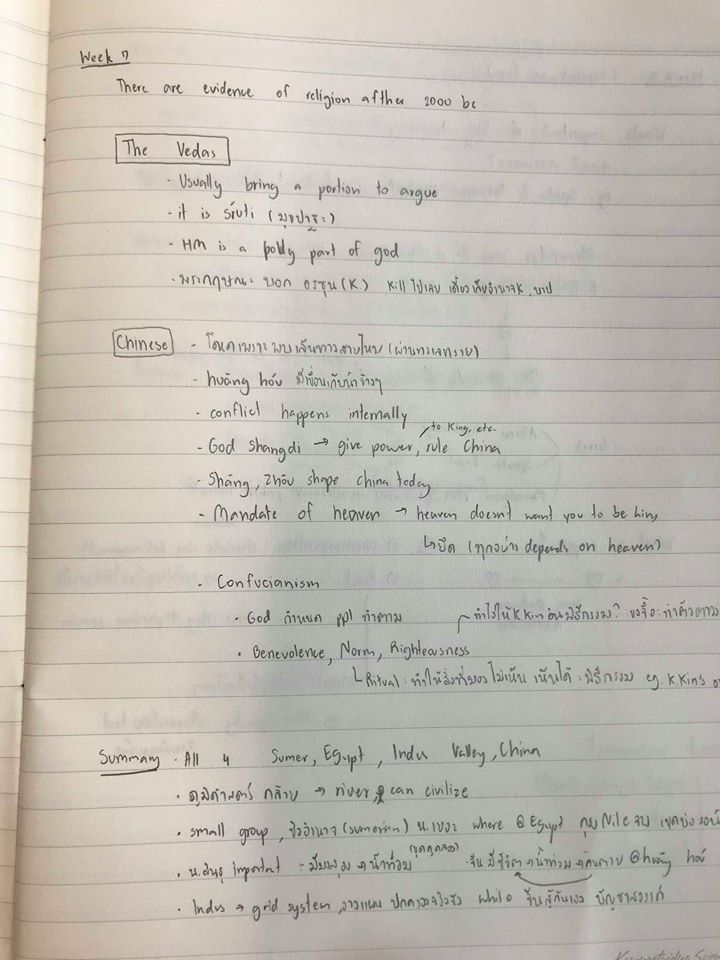 Week 7
There are evidence of religion afther 2000 bc
The Vedas
· Usually bring a portion to argue
· it is Śruti (มุขปาฐะ)
· HM is a part of god
· พระกฤษณะ บอก อรชุน (K.) Kill ไปเลย เดี๋ยวเสียอำนาจ K, บาป
Chinese - โดดเพราะพบเส้นทางสายไหม (ผ่านทะเลทราย)
- huāng hóu
- conflict happens internally
to King, etc.
- God shangdi → give power, rule China
- Shāng, Zhōu shape china today
- Mandate of heaven → heaven doesn't want you to be king
↳ยึด (ทุกอย่าง depends on heaven)
- Confucianism
· God กำหนด ppl ทำตาม
ทำไงให้ K Kin อ่านพิธีกรรม? ขงจื๊อ: ทำตัวตาม
· Benevolence, Norm, Righteousness
↳Ritual: ทำให้สิ่งที่มองไม่เห็น เห็นได้ : พิธีกรรม eg. K Kins
Summary · All 4 Sumer, Egypt, Indus Valley, China
· ภูมิศาสตร์ คล้าย → river, can civilize
· small group, ชิงอำนาจ (sumerian) น.เยอะ where @Egypt คุม Nile จบ
· น.สินธุ important น้ำท่วม จีน น้ำท่วม @huāng hóu
· Indus → grid system, วางแผน while จีนสู้กันเอง บัญชาสวรรค์